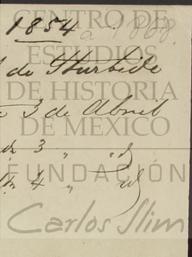 CENTRO DE
1854
ESTUDIOS
de Iturbide
DE HISTORIA
3 de Abril
DE MÉXICO
3 " "
4 " "
FUNDACIÓN
Carlos Slim